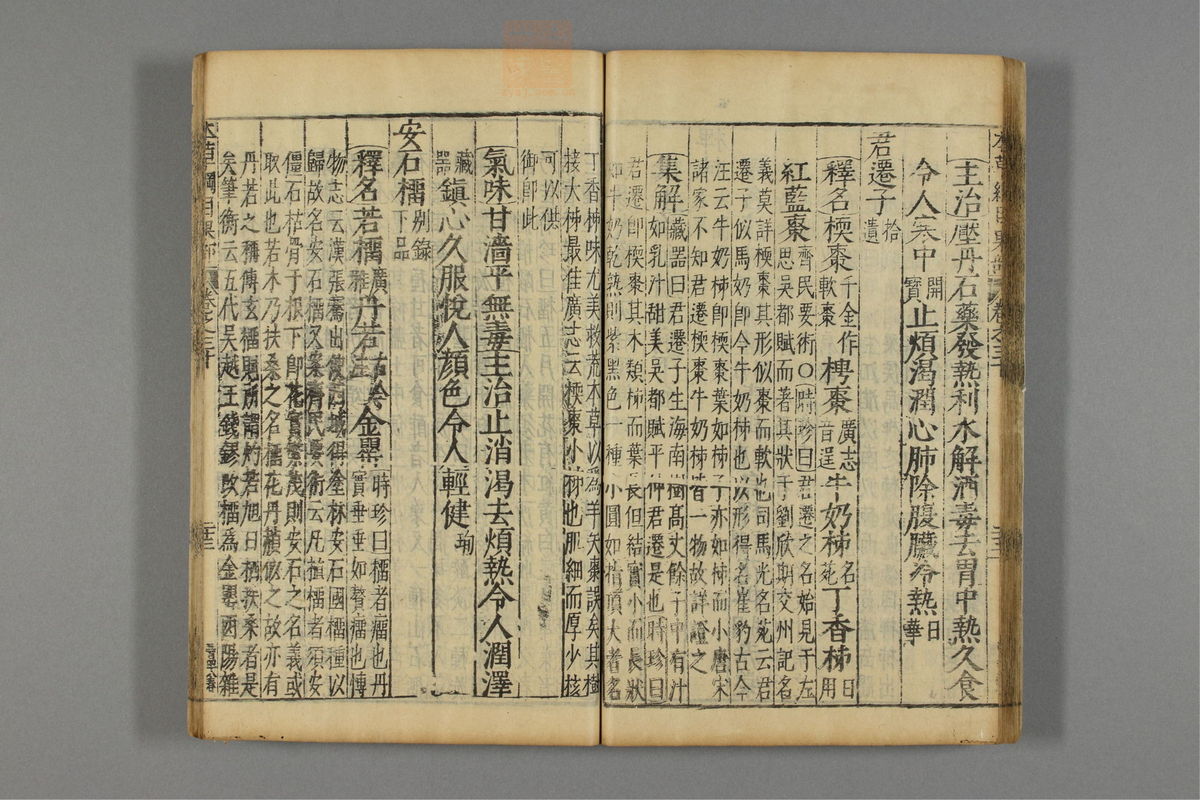 主治壓丹石藥發熱利水解酒毒去胃中熱久食
令人寒中開寶止煩渴潤心肺除腹臟冷熱日華
君遷子拾遺
釋名㮕棗千金作軟棗梬棗廣志音逞牛奶柹名苑丁香柹日用
紅藍棗齊民要術○時珍曰君遷之名始見于左
思吳都賦而著其狀于劉欣期交州記名
義莫詳㮕棗其形似棗而軟也司馬光名苑云君
遷子似馬奶即今牛奶柹也以形得名崔豹古今
注云牛奶柹即㮕棗葉如柹子亦如柹而小唐宋
諸家不知君遷㮕棗牛奶柹皆一物故詳證之
集解藏器曰君遷子生海南樹高丈餘子中有汁
如乳汁甜美吳都賦平仲君遷是也時珍曰
君遷即㮕棗其木類柹而葉長但結實小而長狀
如牛奶乾熟則紫黑色一種小圓如指頂大者名
丁香柹味尤美救荒本草以爲羊矢棗誤矣其樹
接大柹最佳廣志云㮕棗小柹也肌細而厚少核
可以供
御即此
氣味甘濇平無毒主治止消渴去煩熱令人潤澤
藏器鎮心久服悅人顏色令人輕健珣
安石橊別錄下品
釋名若橊廣雅丹若古今注金罌時珍曰橊者瘤也丹
實垂垂如贅瘤也博
物志云漢張騫出使西域得塗林安石國橊種以
歸故名安石橊又案齊民要術云凡植橊者須安
僵石枯骨于根下即花實繁茂則安石之名義或
取此也若木乃扶桑之名橊花丹赬似之故亦有
丹若之稱傅玄橊賦所謂灼若旭日栖扶桑者是
矣筆衡云五代吳越王錢鏐改橊為金罌酉陽雜
本草綱目果部
卷之三十